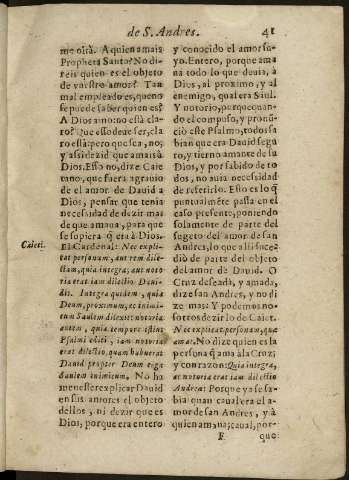 de S. Andres. 41
me oirà. A quien amais
Propheta Santo? No di-
reis quien es el objeto
de vuestro amor? Tan
mal empleado es, que no
se puede saber quien es?
A Dios amo: no està cla-
ro? Que esso deue ser, cla-
ro està: pero que sea, no;
y assi dezid que amais à
Dios. Esso no, dize Caie
tano, que fuera agrauio
de el amor de Dauid a
Dios, pensar que tenia
necessidad de dezir mas
de que amaua, para que
se supiera q̃ era à Dios.
Caieti.
El Cardenal: Nec expli-
tat personam, aut rem dile-
ctam, quia integra, aut noto
ria erat iam dilectio Daui-
dis. Integra quidem, quia
Deum, proximum, et inimi-
cum Saulem dilexit: notoria
autem, quia tempore istius
Psalmi editi, iam notoria
erat dilectio, quam habuerat
Dauid propter Deum erga
Saulem inimicum. No ha
menester explicar Dauid
en sus amores el objeto
dellos, ni dezir que es
Dios, porque era entero
y conocido el amor su-
yo. Entero, porque ama
na todo lo que deuia, à
Dios, al proximo, y al
enemigo, qual era Saul.
Y notorio, porque quan-
do el compuso, y pronũ-
ciò este Psalmo, todos sa
bian que era Dauid segu
ro, y tierno amante de su
Dios, y por sabido de to
dos, no auia necessidad
de referirlo. Esso es lo q̃
puntualmẽte passa en el
caso presente, poniendo
solamente de parte del
sugeto del amor de san
Andres, lo que alli suce-
diò de parte del objeto
del amor de Dauid. O
Cruz desseada, y amada,
dize san Andres, y no di
ze mas: Y podemos no-
sotros dezir lo de Caiet.
Nec explicat personam, quæ
amat. No dize quien es la
persona q̃ ama à la Cruz;
y con razon: Quia integra,
ac notoria erat iam dilectio
Andreæ: Porque ya se sa-
bia quan cabal era el a-
mor de san Andres, y à
quien amaua; caual, por-
F que